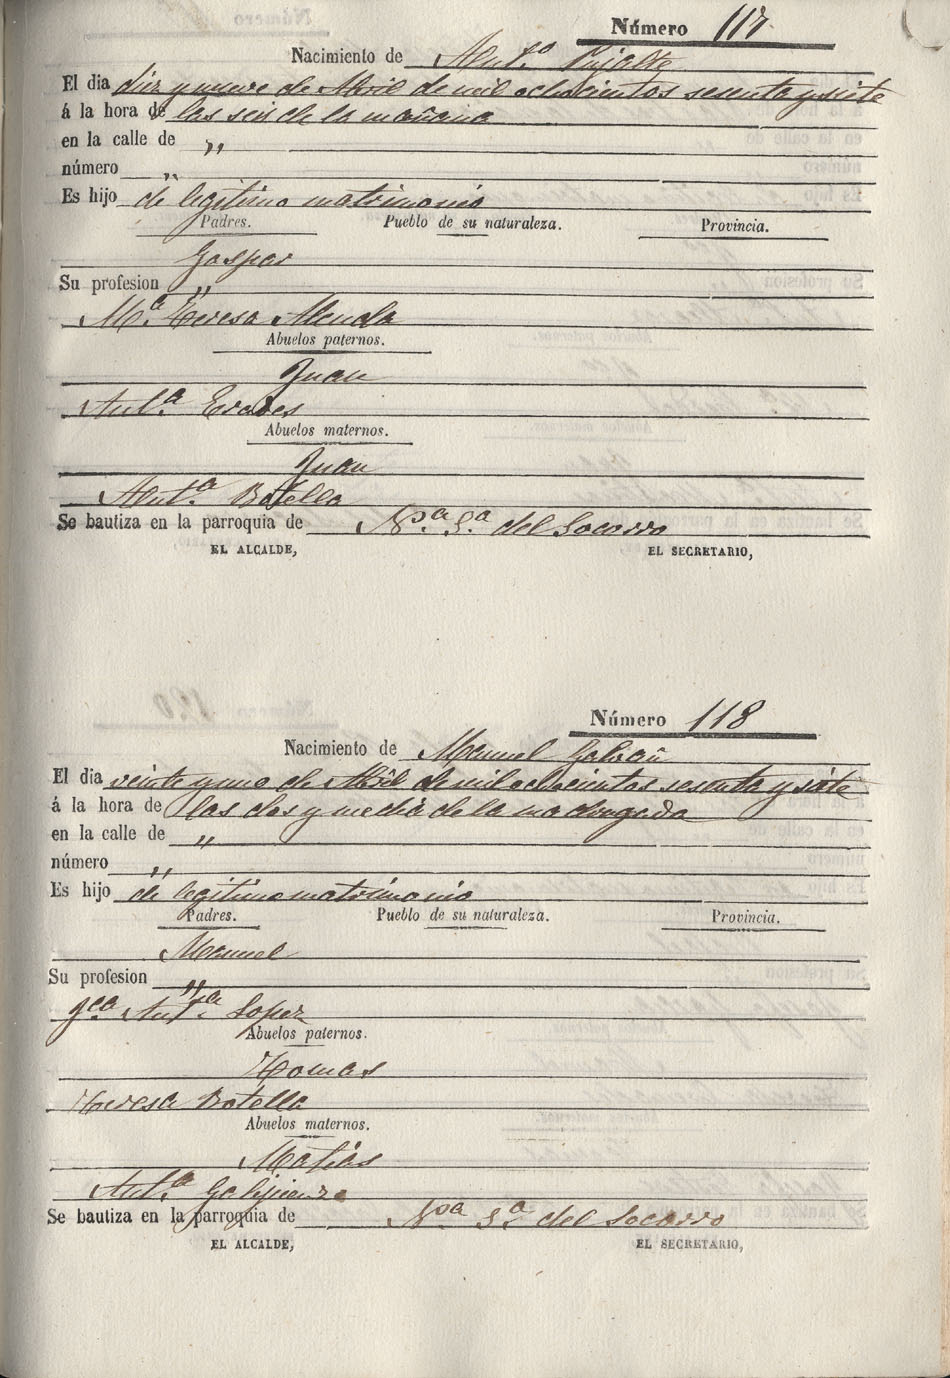 Número 117
Nacimiento de Ant.º Pujalte
El dia diez y nueve de Abril de mil ochocientos sesenta y siete
á la hora de las seis de la mañana
en la calle de ,,
número ,,
Es hijo de legitimo matrimonio
Padres. Pueblo de su naturaleza. Provincia.
Gaspar
Su profesion ,,
M.ª Teresa Alenda
Abuelos paternos.
Juan
Ant.ª
Abuelos maternos.
Juan
Ant.ª Botella
Se bautiza en la parroquia de N.ª S.ª del Socorro
EL ALCALDE, EL SECRETARIO,
Número 118
Nacimiento de Manuel Galvañ
El dia veinte y uno de Abril de mil ochocientos sesenta y siete
á la hora de las dos y media de la madrugada
en la calle de ,,
número ,,
Es hijo de legitimo matrimonio
Padres. Pueblo de su naturaleza. Provincia.
Manuel
Su profesion ,,
Ant.ª Lopez
Abuelos paternos.
Tomas
Teresa Botella
Abuelos maternos.
Matias
Ant.ª Galipienzo
Se bautiza en la parroquia de N.ª S.ª del Socorro
EL ALCALDE, EL SECRETARIO,